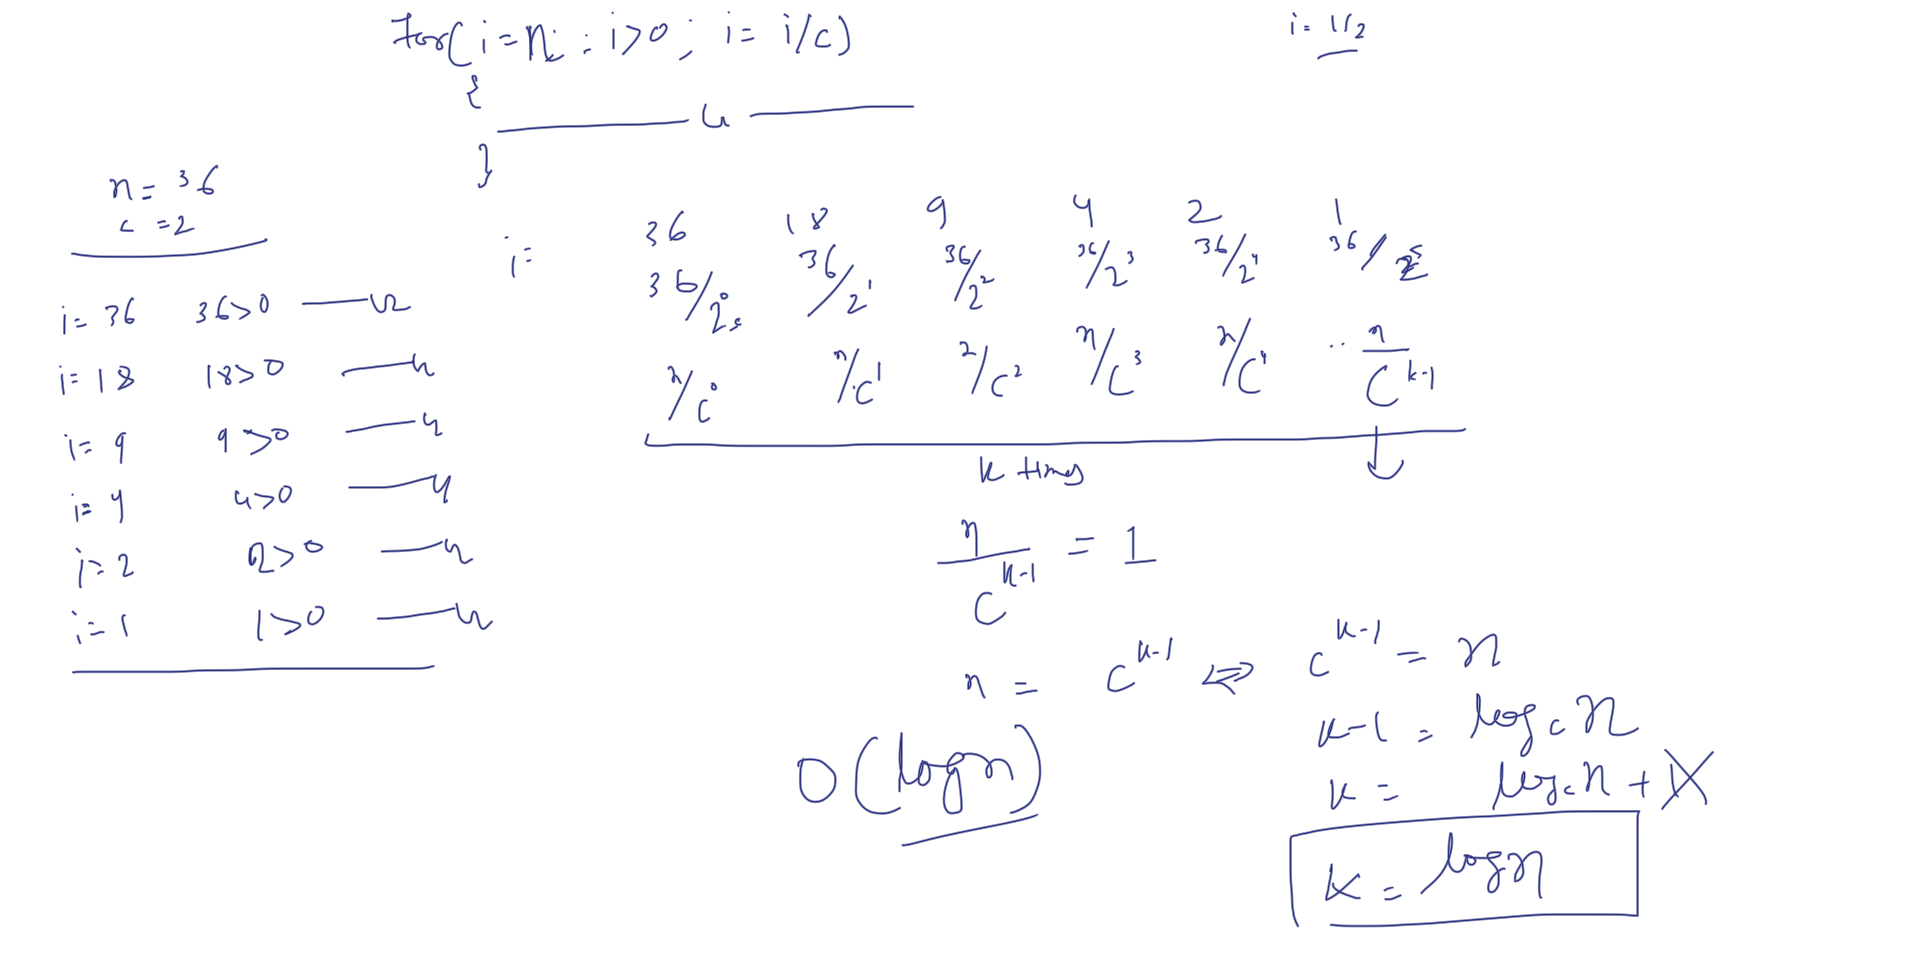 for( i = n ; i>0 ; i = i/c)
i = 1/2
{
}
n = 36
c = 2
i = 36 36>0
i = 18 18>0
i = 9 9>0
i = 4 4>0
i = 2 2>0
i = 1 1>0
i = 36 18 9 4 2 1
36/2^0 36/2^1 36/2^2 36/2^3 36/2^4 36/2^5
n/c^0 n/c^1 2/c^2 n/c^3 n/c^4 .. n/c^(k-1)
k times
n/c^(k-1) = 1
n = c^(k-1) ⇔ c^(k-1) = n
k-1 = log_c n
k = log_c n + 1
O(log n)
k = log n